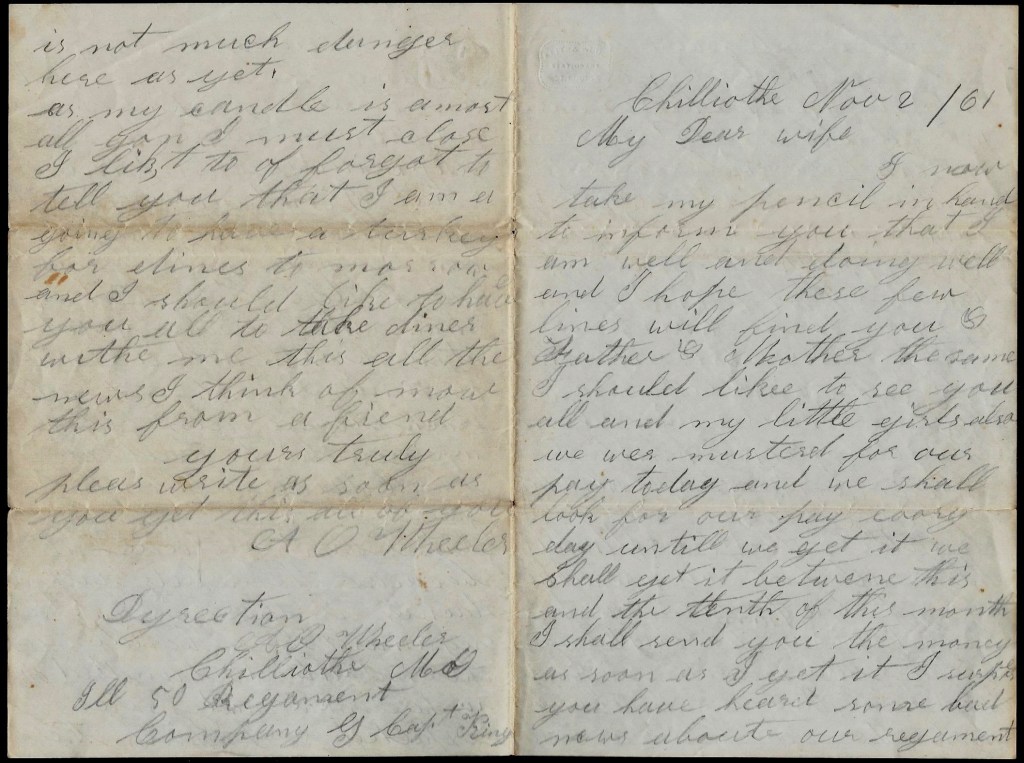 Chilliothe Nov 2 /61
My Dear wife
I now
take my pencil in hand
to inform you that I
am well and doing well
and I hope these few
lines will find you &
Father & Mother the same
I should likee to see you
all and my little girls also
we wer musterd for our
pay today and we shall
look for our pay evry
day untill we get it we
shall get it betwene this
and the tenth of this month
I shall send you the money
as soon as I get it I
you have heard some bad
news aboute our regament
is not much dunger
here as yet.
as my candle is amost
all gon I must close
I list to of forgot to
tell you that I am a
going to have a turkey
for diner to morrow
and I should like to have
you all to take diner
withe me this all the
news I think of now
this from a friend
yours truly
pleas write as soon as
you get this
A O Wheeler
Dyrection
A O Wheeler
Chilliothe Mo
Ill 50 Regament
Company G Capt King